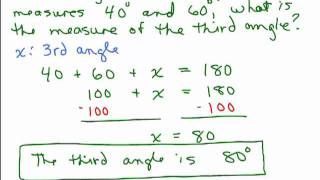 measures 40° and 60°! what is
the measure of the third angle?
x: 3rd angle
40 + 60 + x = 180
100 + x = 180
-100 -100
x = 80
The third angle is 80°